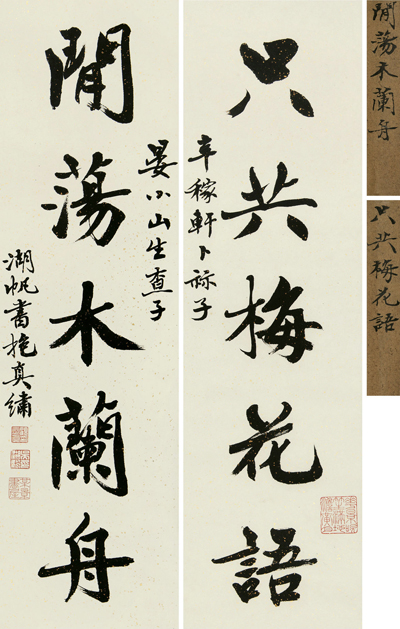 只共梅花語
辛稼軒卜祘子
閒蕩木蘭舟
晏小山生查子
湖帆書抱真繡
閒蕩木蘭舟
只共梅花語